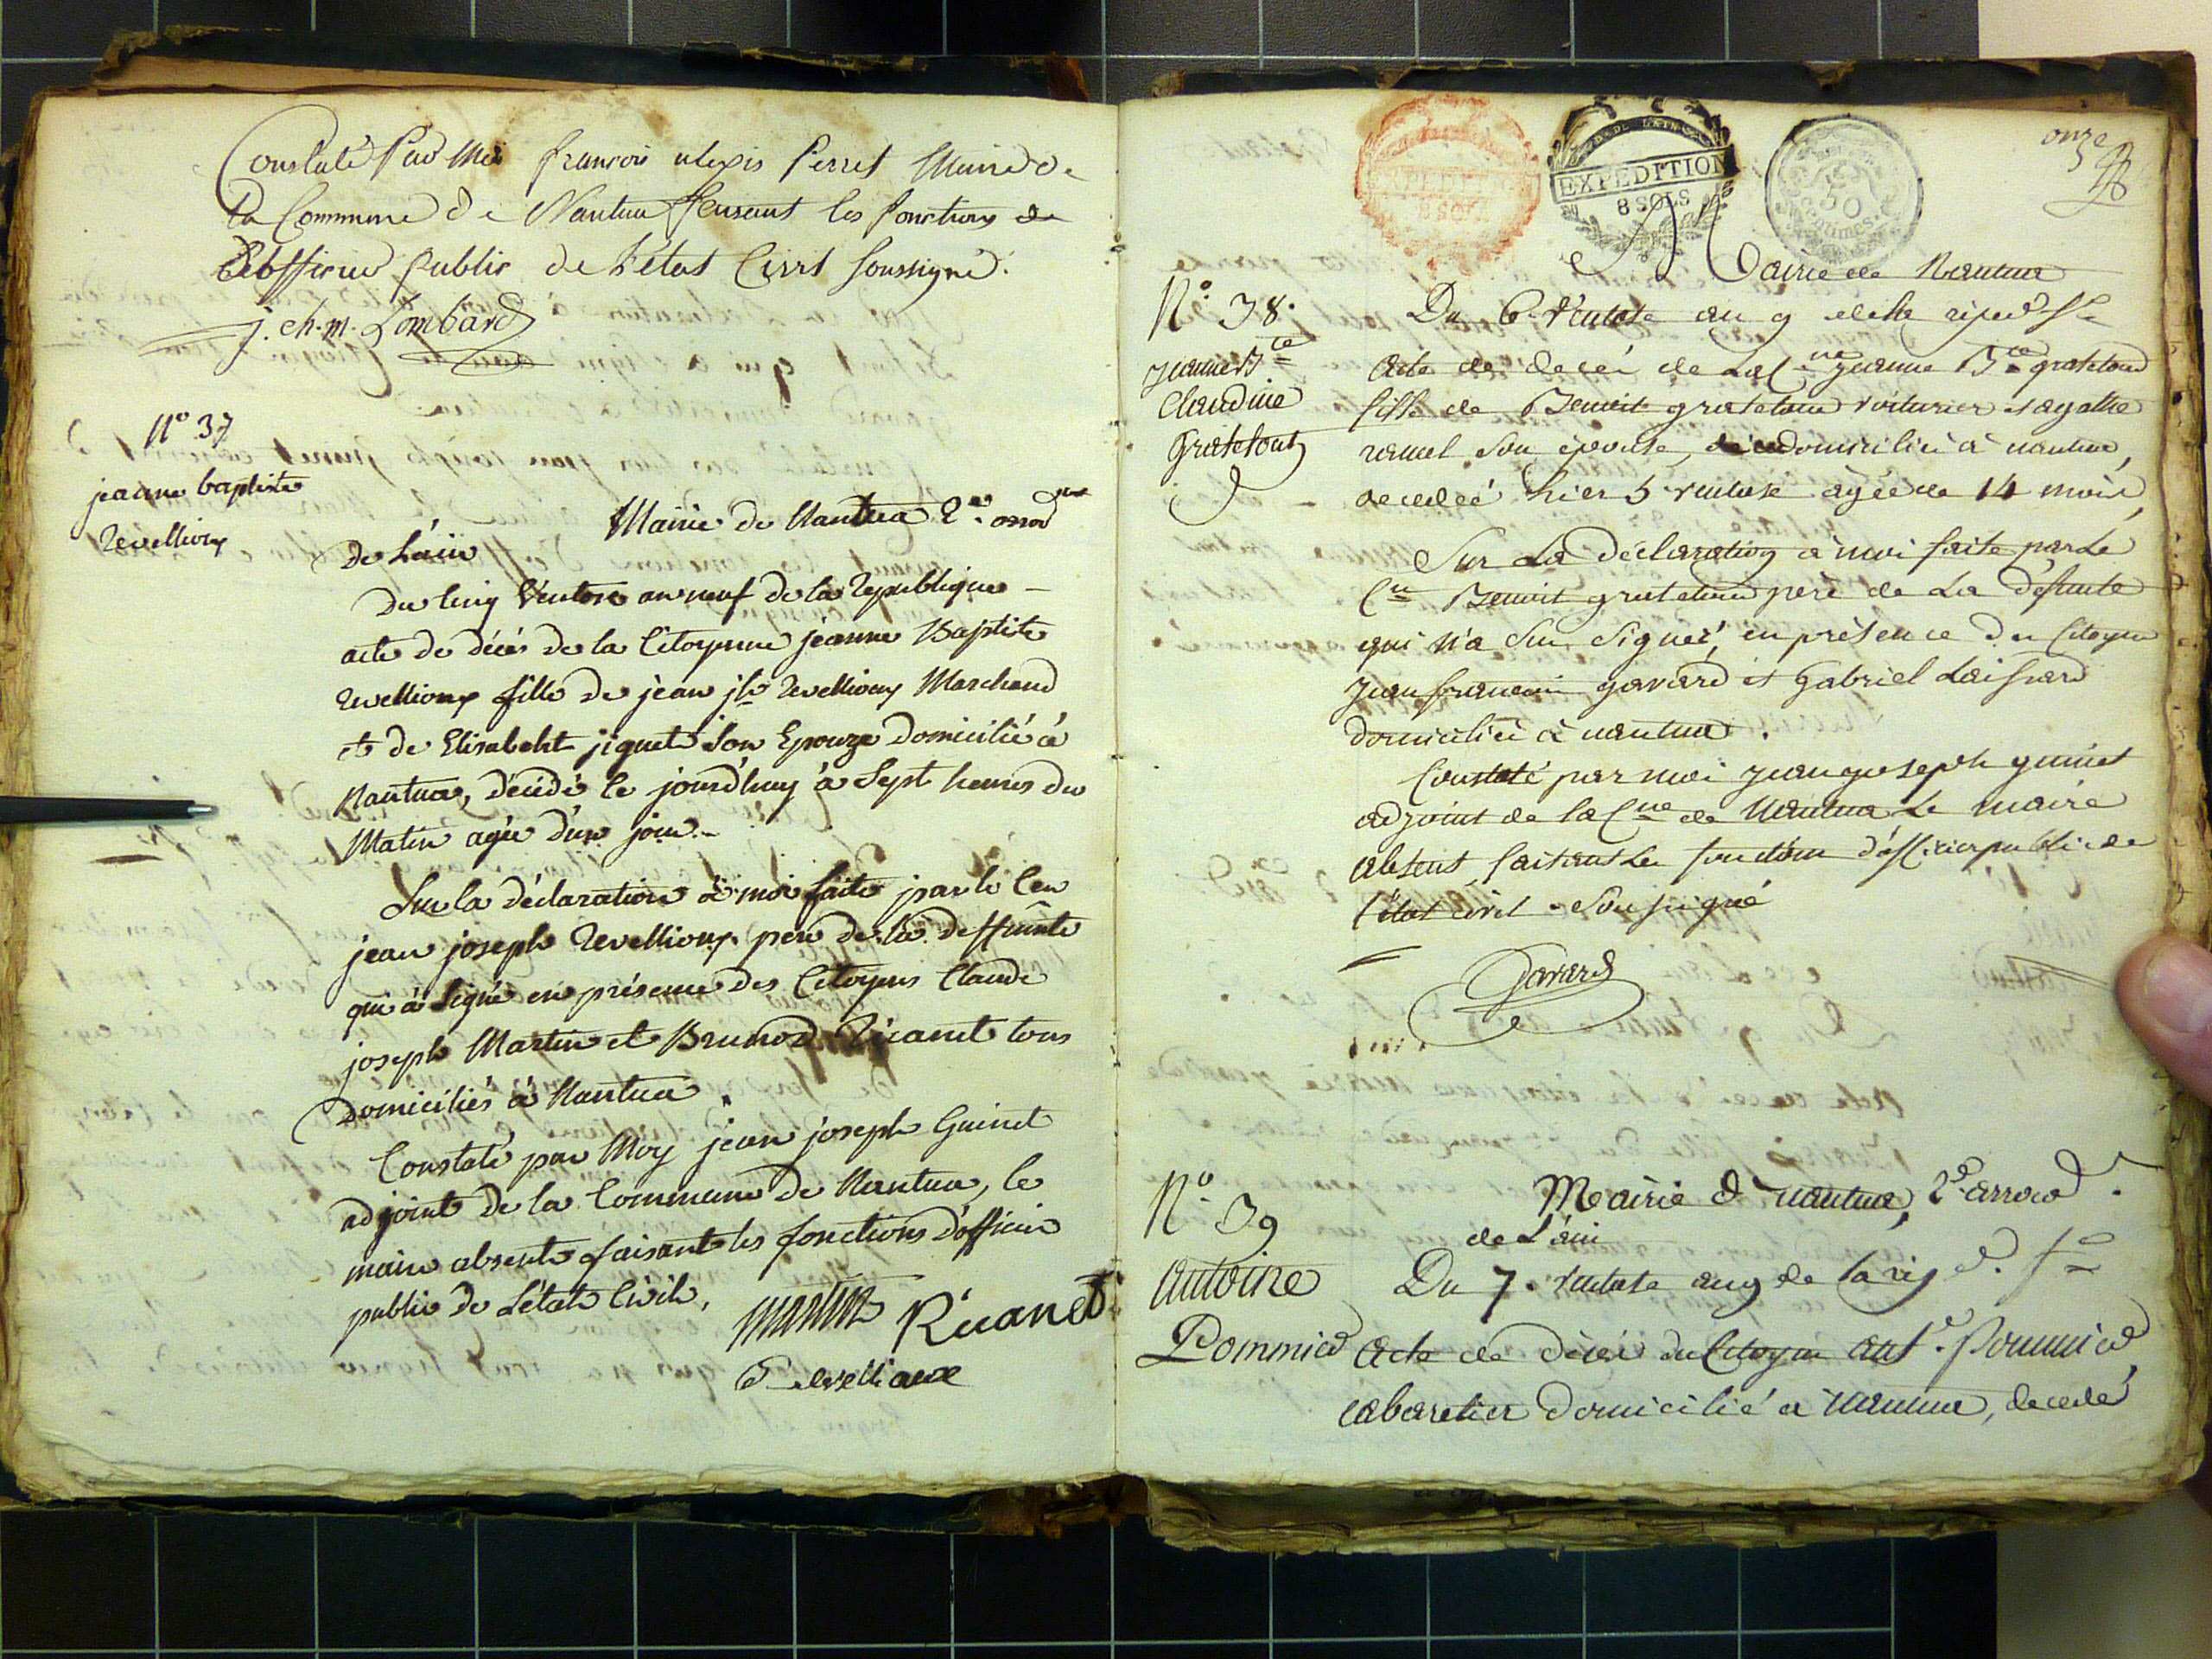 Constaté Par Moi françois alexis Perret Maire de
La Commune de Nantua faisant les fonctions de
L'officier public de L'état Civil Soussigné.
j. ch. m. Lombard
N° 37
jeanne baptiste
Revellioux
Mairie de Nantua 2.e arrond.
de L'ain
Du Cinq Ventose an neuf de la Republique
acte de décés de la Citoyenne jeanne Baptiste
Revellioux fille de jean jh Revellioux Marchand
et de Elisabeht jiguet Son Epouze Domicilié à
Nantua, décédé le jourd'huy à Sept heures du
Matin agée d'un jour.
Sur la déclaration à moi faite par le Cen
jean joseph Revellioux pere de la deffunte
qui à Signé en présence des Citoyens Claude
joseph Martin et Brunod Ricanet tous
Domiciliés à Nantua.
Constaté par Moy jean joseph Guinet
adjoint de la Commune de Nantua, le
maire absent faisant les fonctions d'officier
public de L'état Civil,
Martin Ricanet
Revellioux
onze
EXPEDITION
8 SOLS
EXPEDITION
8 SOLS
50
centimes
Mairie de Nantua
N° 38.
jeanne B.te
Claudine
Gratetout
Du 6 Ventose an 9 de la
Acte de decés de La C.ne jeanne B.te gratetout
fille de Benoit gratetout voiturier et agathe
ramel Son épouse, domicilié à nantua,
decedeé hier 5 ventose agée de 14 mois,
Sur La déclaration à moi faite par Le
C.en Benoit gratetout pere de La défunte
qui n'a Su Signer, en présence du Citoyen
jean francois gavard et Gabriel Laissard
domicilié à nantua.
Constaté par moi jean joseph guinet
adjoint de la C.ne de Nantua Le maire
absent, faisant Les fonction d'officier public de
l'état civil Soussigné
Gavard
N° 39
Antoine
Pommier
Mairie de nantua, 2.e arrond.
de L'ain
Du 7. ventose an 9 de la
Acte de décés du Citoyen Ant.e Pommier
cabaretier domicilié a Nantua, decedé